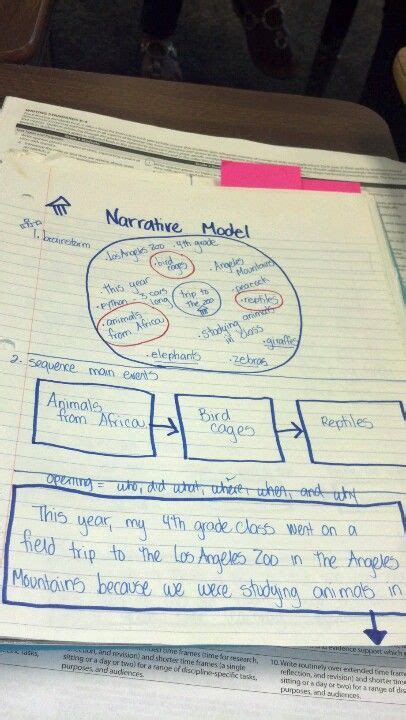 WRITING STANDARDS K-5
Narrative Model
1. brainstorm
Los Angeles Zoo
4th grade
bird
cages
Angeles
Mountains
this year
3 cars
long
trip to
the zoo
peacock
• reptiles
• python
• animals
from Africa
• studying
animals
in class
• giraffes
• elephants
• zebras
2. sequence main events
Animals
from Africa
Bird
cages
Reptiles
opening = who, did what, where, when, and why
This year, my 4th grade class went on a
field trip to the Los Angeles Zoo in the Angeles
Mountains because we were studying animals in
evidence support which
tion, and revision) and shorter time frames (a single
sitting or a day or two) for a range of discipline-specific tasks,
purposes, and audiences.
10. Write routinely over extended time frames
reflection, and revision) and shorter time
sitting or a day or two) for a range of dis
purposes, and audiences.